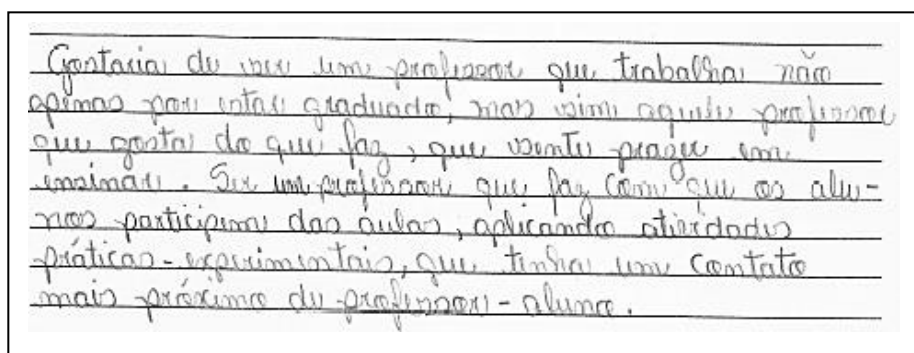 Gostaria de ser um professor que trabalha não
apenas por estar graduado, mas sim aquele professor
que gosta do que faz, que sente prazer em
ensinar. Ser um professor que faz com que os alu-
nos participem das aulas, aplicando atividades
práticas-experimentais, que tenha um contato
mais próximo de professor-aluno.